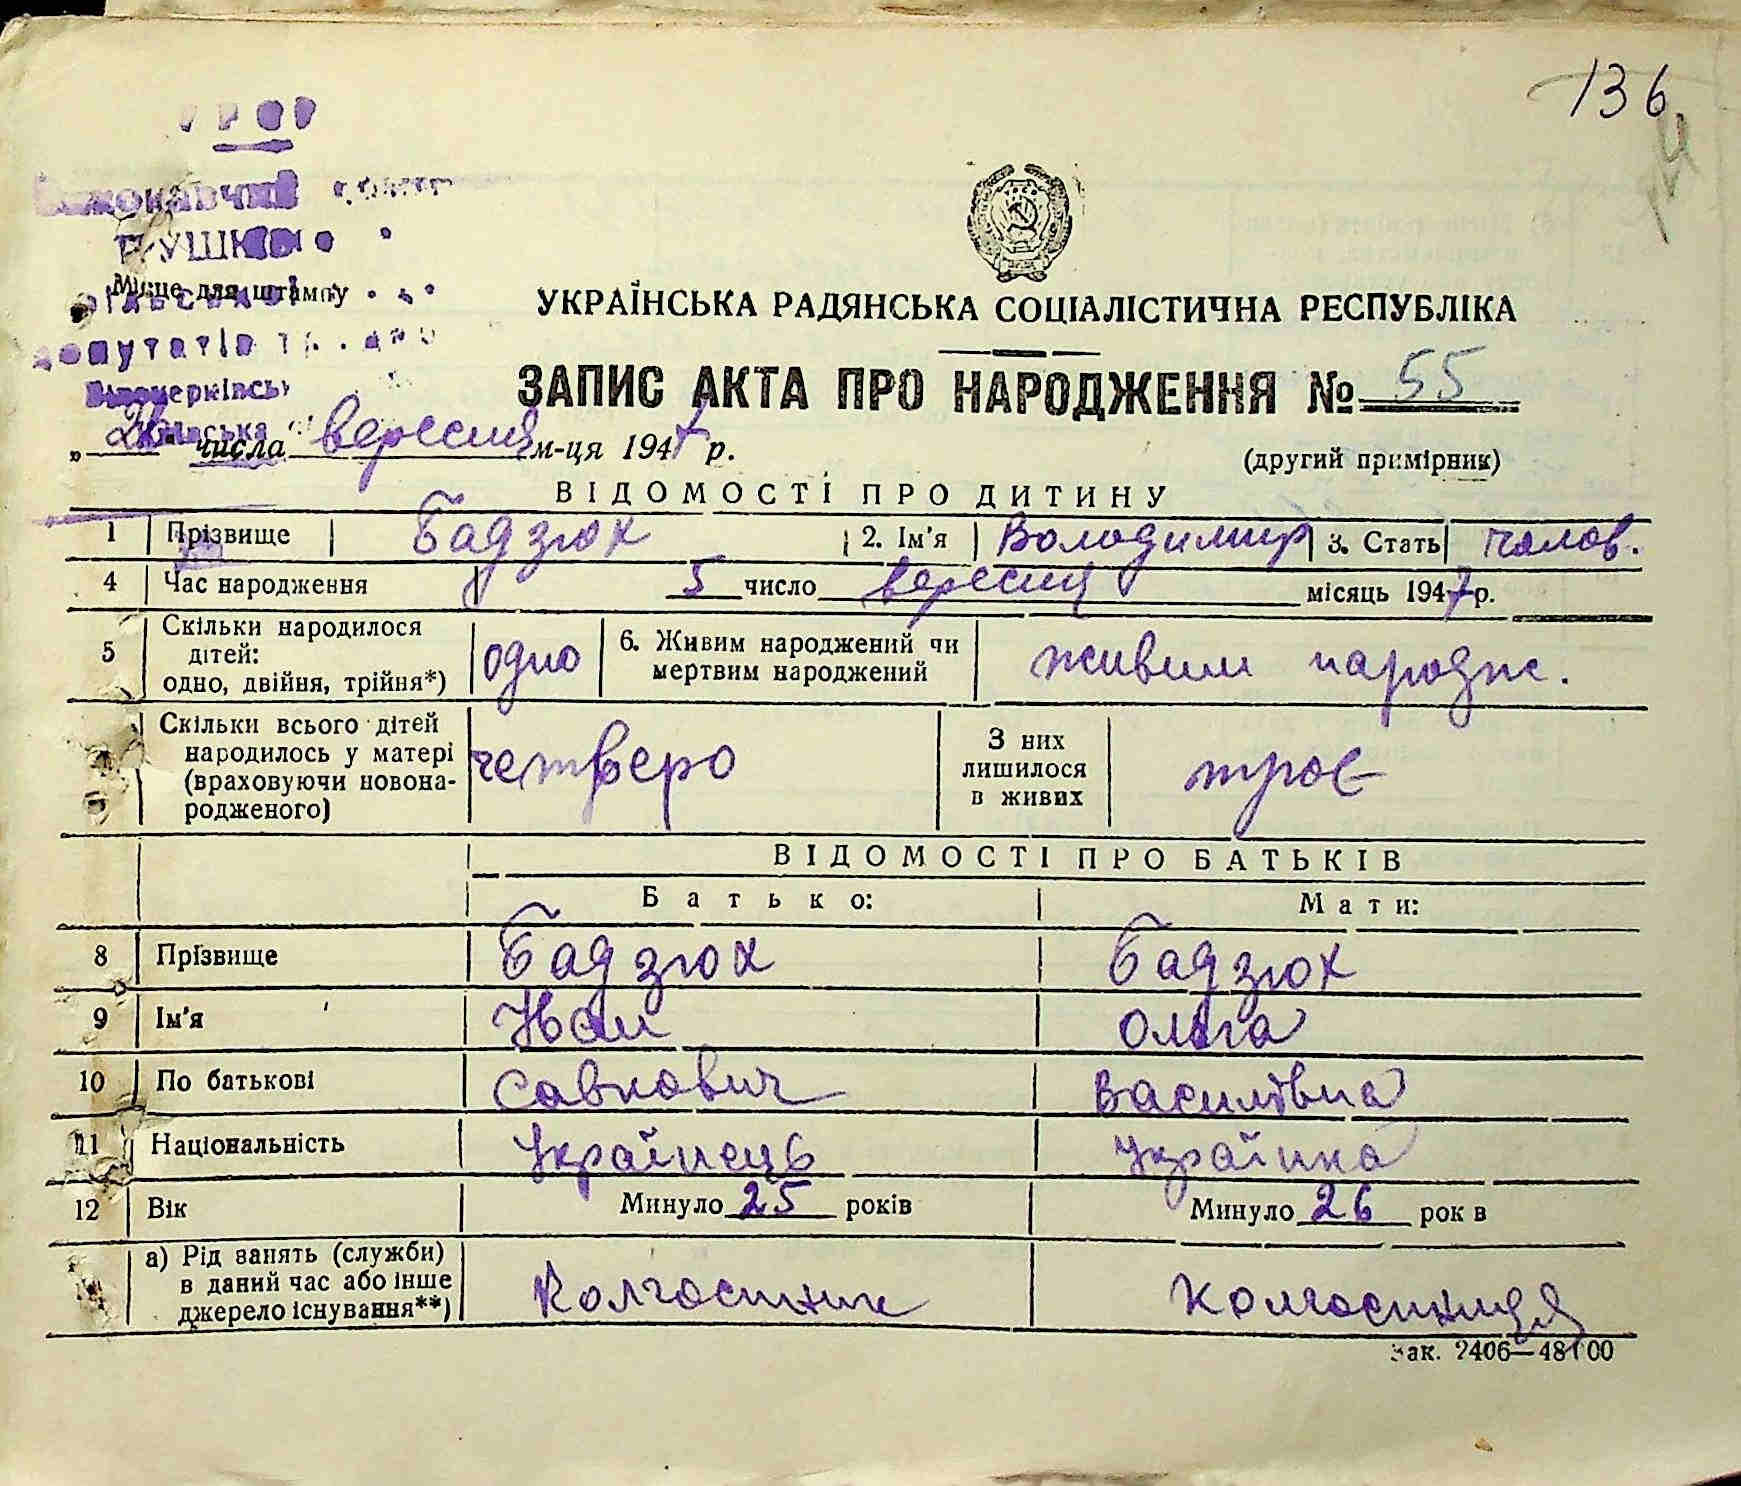 136
УРСР
Виконавчий комітет
ТРУШКІВ
Місце для штампу
депутатів
Білоцерківськ
Київська
УКРАЇНСЬКА РАДЯНСЬКА СОЦІАЛІСТИЧНА РЕСПУБЛІКА
ЗАПИС АКТА ПРО НАРОДЖЕННЯ № 55
„ числа вересня м-ця 1947 р.
(другий примірник)
ВІДОМОСТІ ПРО ДИТИНУ
1 Прізвище Бадзюх 2. Ім'я Володимир 3. Стать чолов.
4 Час народження 5 число вересня місяць 1947 р.
5 Скільки народилося дітей: одно, двійня, трійня*) одно 6. Живим народжений чи мертвим народжений живим народж.
Скільки всього дітей народилось у матері (враховуючи новонародженого) четверо З них лишилося в живих троє
ВІДОМОСТІ ПРО БАТЬКІВ
Батько: Мати:
8 Прізвище Бадзюх Бадзюх
9 Ім'я Іван Ольга
10 По батькові Савкович Василівна
11 Національність Українець Українка
12 Вік Минуло 25 років Минуло 26 рок в
а) Рід занять (служби) в даний час або інше джерело існування**) Колгоспник Колгоспниця
Зак. 2406—48100